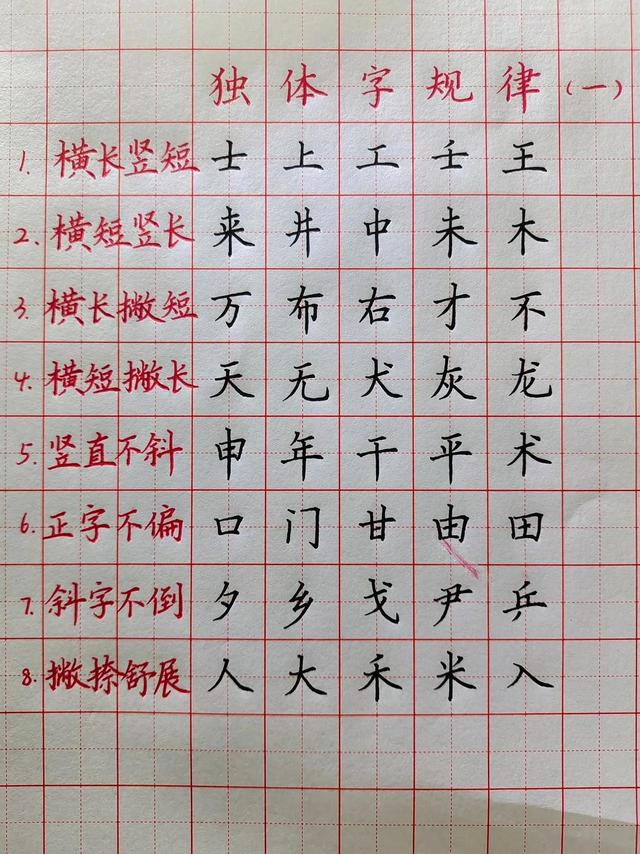 独体字规律(一)
1. 横长竖短 士上工壬王
2. 横短竖长 来井中未木
3. 横长撇短 万布右才不
4. 横短撇长 天无犬灰龙
5. 竖直不斜 申年干平术
6. 正字不偏 口门甘由田
7. 斜字不倒 夕乡戈尹乒
8. 撇捺舒展 人大禾米入